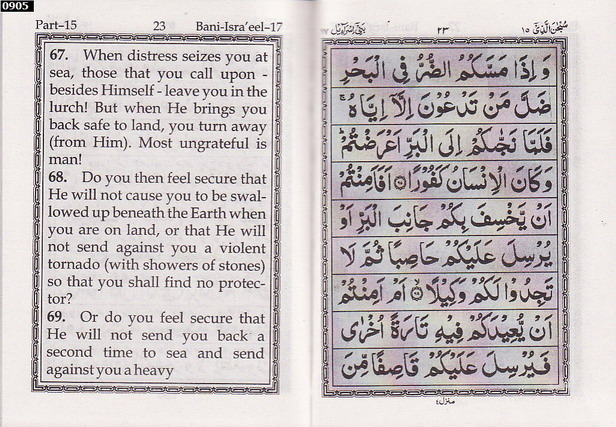 0905
Part–15 23 Bani-Isra'eel–17
67. When distress seizes you at
sea, those that you call upon -
besides Himself - leave you in the
lurch! But when He brings you
back safe to land, you turn away
(from Him). Most ungrateful is
man!
68. Do you then feel secure that
He will not cause you to be swal-
lowed up beneath the Earth when
you are on land, or that He will
not send against you a violent
tornado (with showers of stones)
so that you shall find no protec-
tor?
69. Or do you feel secure that
He will not send you back a
second time to sea and send
against you a heavy
سُبْحٰنَ الَّذِیْٓ ۱۵ ۲۳ بَنِیْٓ اِسْرَآءِیْل ۱۷
وَ اِذَا مَسَّكُمُ الضُّرُّ فِی الْبَحْرِ
ضَلَّ مَنْ تَدْعُوْنَ اِلَّاۤ اِیَّاهُ ۚ
فَلَمَّا نَجّٰىكُمْ اِلَی الْبَرِّ اَعْرَضْتُمْ ؕ
وَ كَانَ الْاِنْسَانُ كَفُوْرًا ۞ اَفَاَمِنْتُمْ
اَنْ یَّخْسِفَ بِكُمْ جَانِبَ الْبَرِّ اَوْ
یُرْسِلَ عَلَیْكُمْ حَاصِبًا ثُمَّ لَا
تَجِدُوْا لَكُمْ وَكِیْلًا ۞ اَمْ اَمِنْتُمْ
اَنْ یُّعِیْدَكُمْ فِیْهِ تَارَةً اُخْرٰی
فَیُرْسِلَ عَلَیْكُمْ قَاصِفًا مِّنَ
منزل ٤